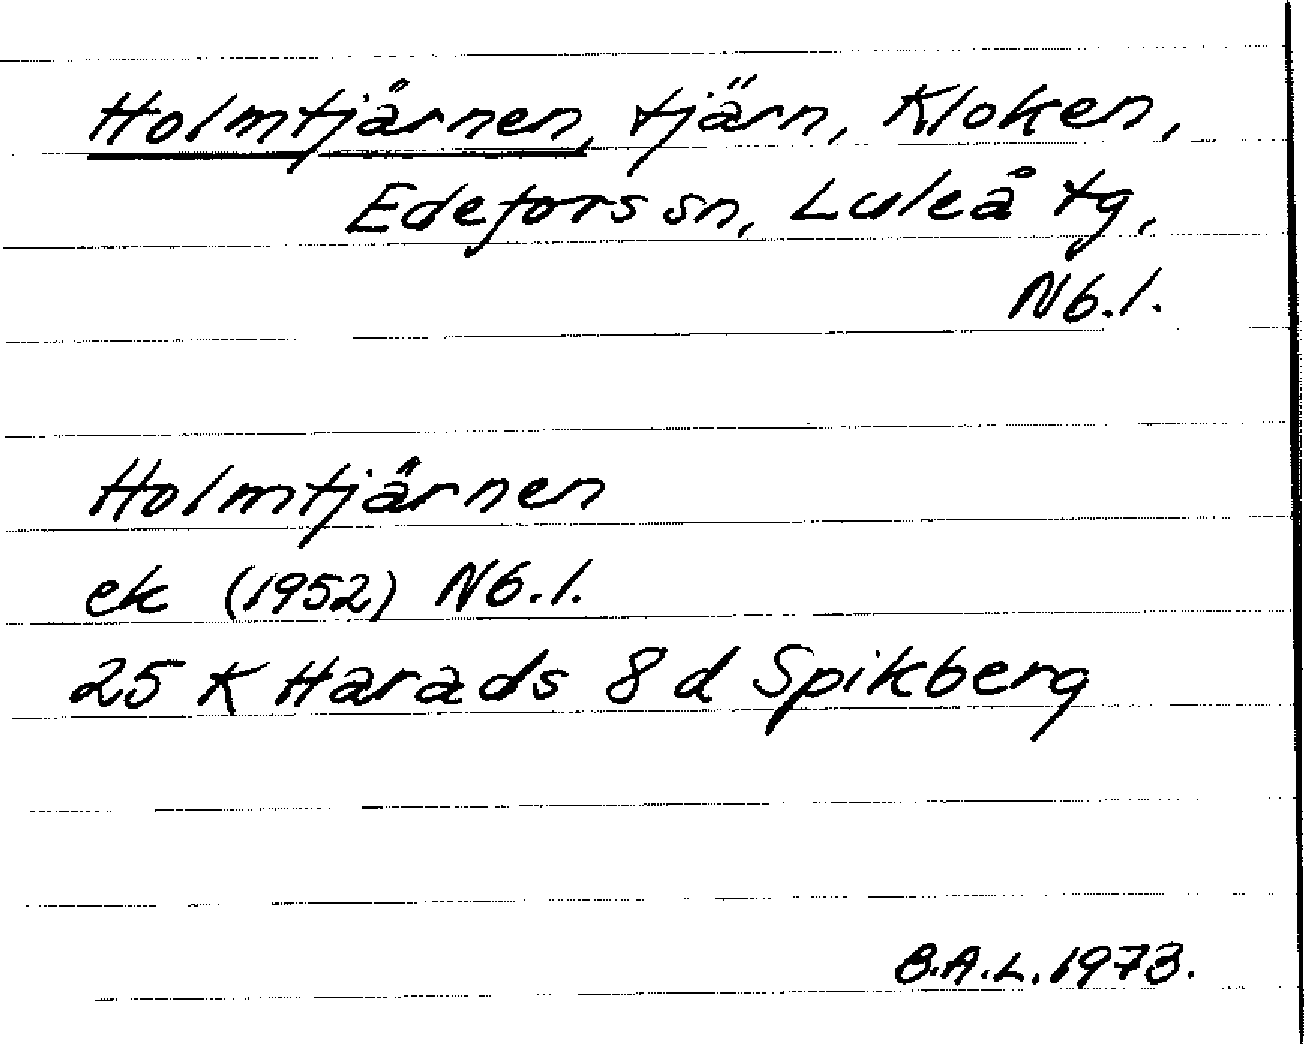 Holmtjårnen, tjärn, Kloken,
Edefors sn, Luleå tg,
Nb.l.
Holmtjårnen
ek (1952) Nb.l.
25 K Harads 8 d Spikberg
B.A.L. 1973.